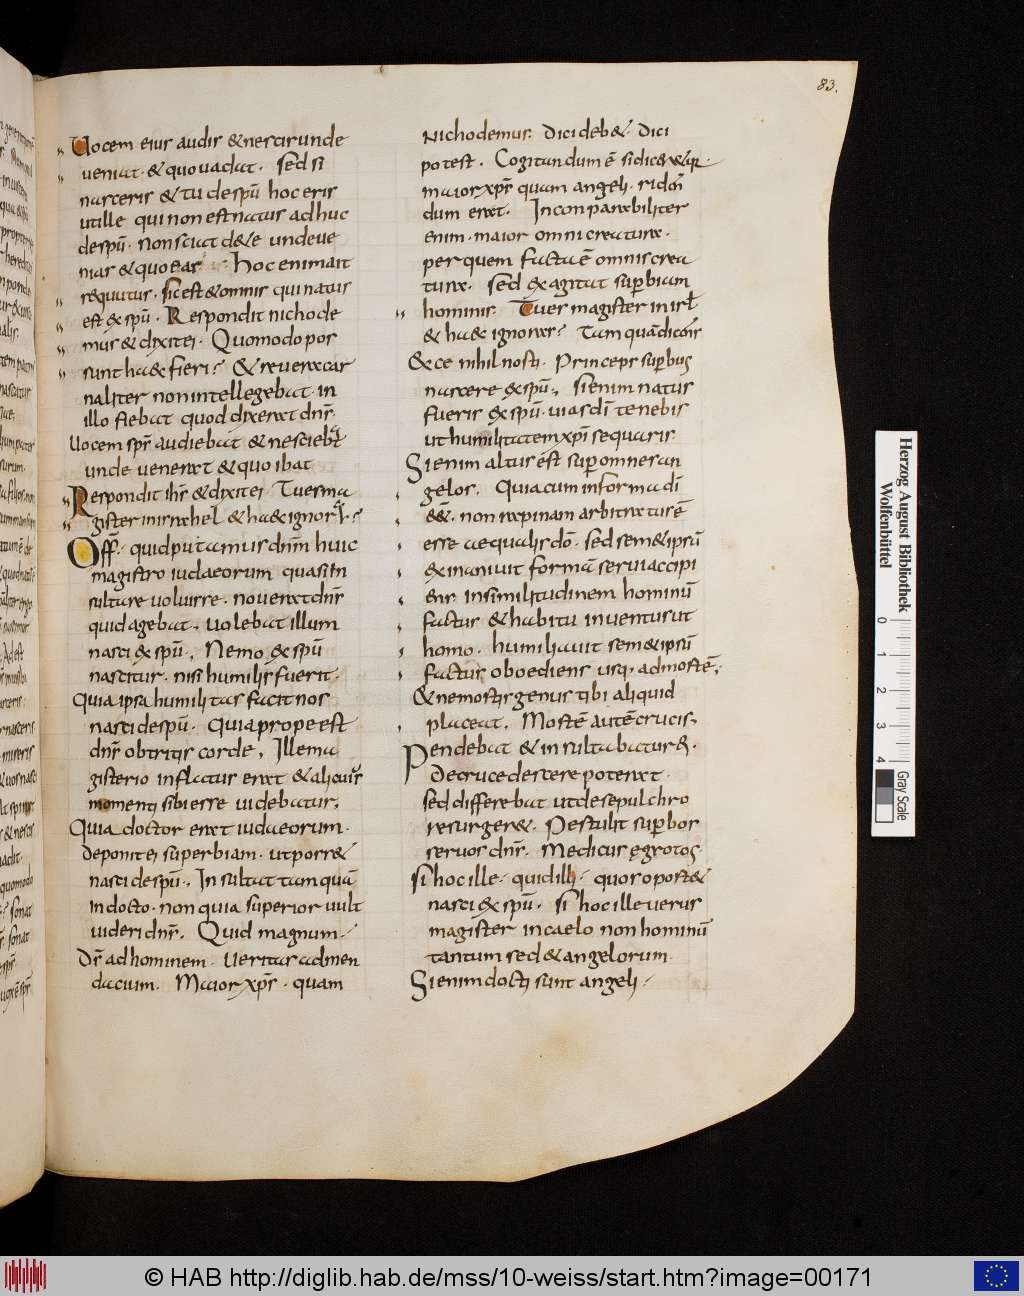 83.
Uocem eius audis & nescis unde
ueniat · & quo uadat · sed si
nasceris & tu de spū hoc eris
ut ille qui non est natus adhuc
de spū · non sciat de te unde ue
nias & quo eas Hoc enim ait
sequitur · sic est & omnis qui natus
est ex spū · Respondit nichode
mus & dixit ei · Quomodo pos
sunt haec fieri? & reuera car
naliter non intellegebat · in
illo fiebat quod dixerat dn̄s ·
Uocem sp̄s audiebat & nesciebat
unde uenerat & quo ibat
Respondit ih̄s & dixit ei Tu es ma
gister in israhel & haec ignoras?
Off quid putamus dn̄m huic
magistro iudaeorum quasi in
sultare uoluisse · nouerat dn̄s
quid agebat, uolebat illum
nasci ex spū, Nemo ex spū
nascitur · nisi humilis fuerit ·
Quia ipsa humilitas facit nos
nasci de spū · Quia prope est
dn̄s obtritis corde, Ille ma
gisterio inflatus erat & alicuius
momenti sibi esse uidebatur,
Quia doctor erat iudaeorum ·
Deponit ei superbiam · ut poss&
nasci de spū, Insultat tamquā
indocto · non quia superior uult
uideri dn̄s, Quid magnum
Ds̄ ad hominem · ueritas ad men
dacium. Maior xp̄s · quam
Nichodemus · Dici deb& · Dici
potest · Cogitandum ē si dicer&ur ·
maior xp̄s quam angeli · riden
dum erat. Inconparabiliter
enim · maior omni creatura ·
per quem facta ē omnis crea
tura · sed exagitat superbiam
hominis · Tu es magister in isrl
& haec ignoras? Tamquā dicens
Ecce nihil nosti · Princeps superbus
nascere ex spū, si enim natus
fueris ex spū · uias dī tenebis
ut humilitatem xp̄i sequaris ·
Si enim altus ést super omnes an
gelos · Quia cum in forma dī
ess& · non rapinam arbitratus ē
esse aequalis dō · sed semetipsū
exinaniuit formā serui accipi
ens in similitudinem hominū
factus & habitu inuentus ut
homo · humiliauit semetipsū
factus oboediens usq· ad mortē,
& ne mortis genus tibi aliquid
placeat, Mortē autē crucis,
Pendebat & insultabatur ei ·
De cruce descere poterat ·
sed differebat ut de sepulchro
resurger& · Pertulit super bos
seruos dn̄s · Medicus ęgrotos ·
si hoc ille · quid illi · quos oport&
nasci ex spū · si hoc ille uerus
magister in caelo non hominū
tantum sed & angelorum ·
Si enim docti sunt angeli
Herzog August Bibliothek
Wolfenbüttel
0 1 2 3 4
Gray Scale
© HAB http://diglib.hab.de/mss/10-weiss/start.htm?image=00171